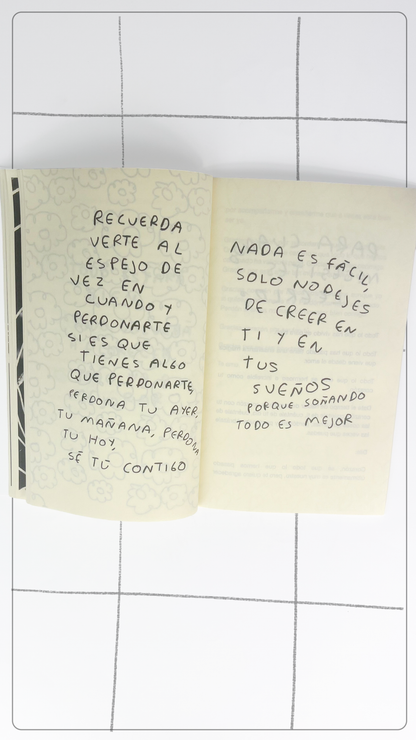 RECUERDA
VERTE AL
ESPEJO DE
VEZ EN
CUANDO Y
PERDONARTE
SI ES QUE
TIENES ALGO
QUE PERDONARTE,
PERDONA TU AYER,
TU MAÑANA, PERDONA
TU HOY,
SÉ TÚ CONTIGO
NADA ES FÁCIL,
SOLO NO DEJES
DE CREER EN
TI Y EN
TUS
SUEÑOS
PORQUE SOÑANDO
TODO ES MEJOR